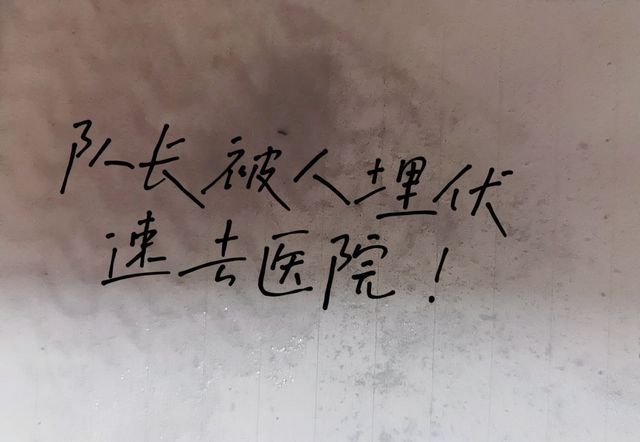 队长被人埋伏
速去医院！